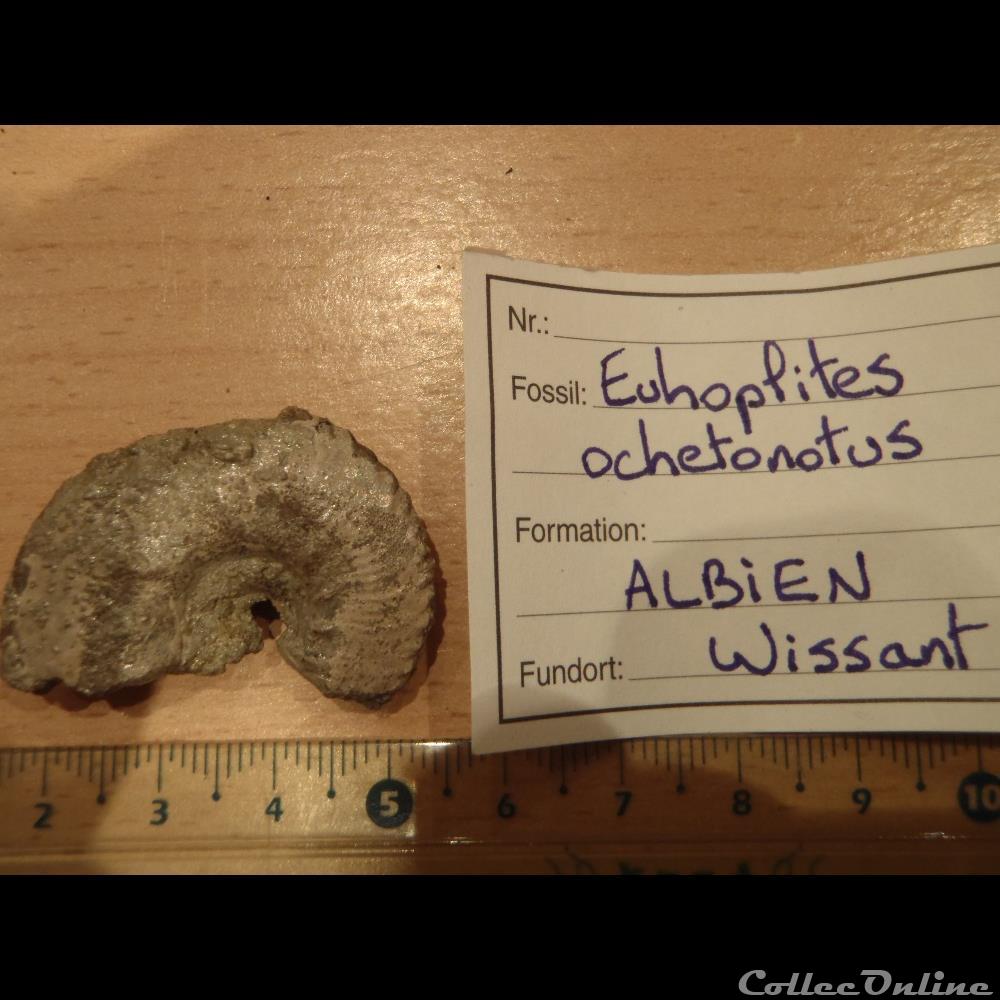 Nr.:
Fossil: Euhoplites
ochetonotus
Formation:
ALBiEN
Fundort: Wissant
2 3 4 5 6 7 8 9 10
CollecOnline